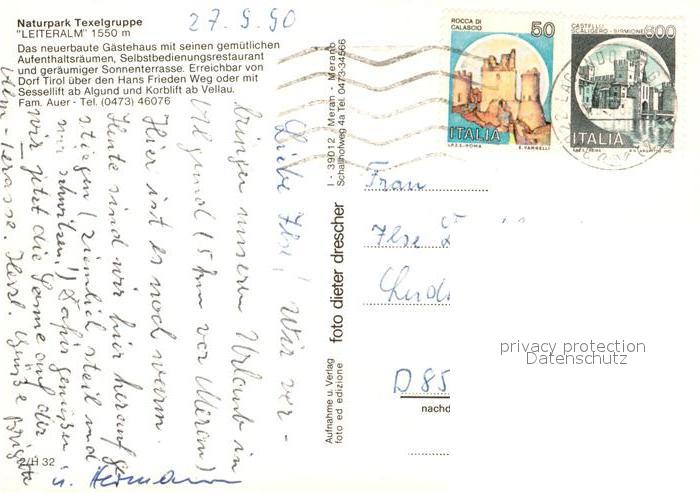 Naturpark Texelgruppe
"LEITERALM" 1550 m
Das neuerbaute Gästehaus mit seinen gemütlichen
Aufenthaltsräumen, Selbstbedienungsrestaurant
und geräumiger Sonnenterrasse. Erreichbar von
Dorf Tirol über den Hans Frieden Weg oder mit
Sessellift ab Algund und Korblift ab Vellau.
Fam. Auer - Tel. (0473) 46076
27.9.90
Liebe Ilse! Wir ver-
bringen unseren Urlaub in
Algund (5 km vor Meran)
Hier ist es noch warm.
Heute sind wir hier herauf ge
stiegen (ziemlich steil und
wir schwitzen!) Dafür genießen
wir jetzt die Sonne auf der
Alm-Terasse. Herzl. Grüße Brigitte
u. Hermann
2/H 32
I - 39012 - Meran - Merano
Schallhofweg 4a Tel. 0473-34566
foto dieter drescher
Aufnahme u. Verlag
foto ed edizione
ROCCA DI
CALASCIO
50
ITALIA
I.P.Z.S.-ROMA E. VANGELLI
CASTELLO
SCALIGERO - SIRMIONE
600
ITALIA
Frau
Ilse
D 85
nachd
privacy protection
Datenschutz